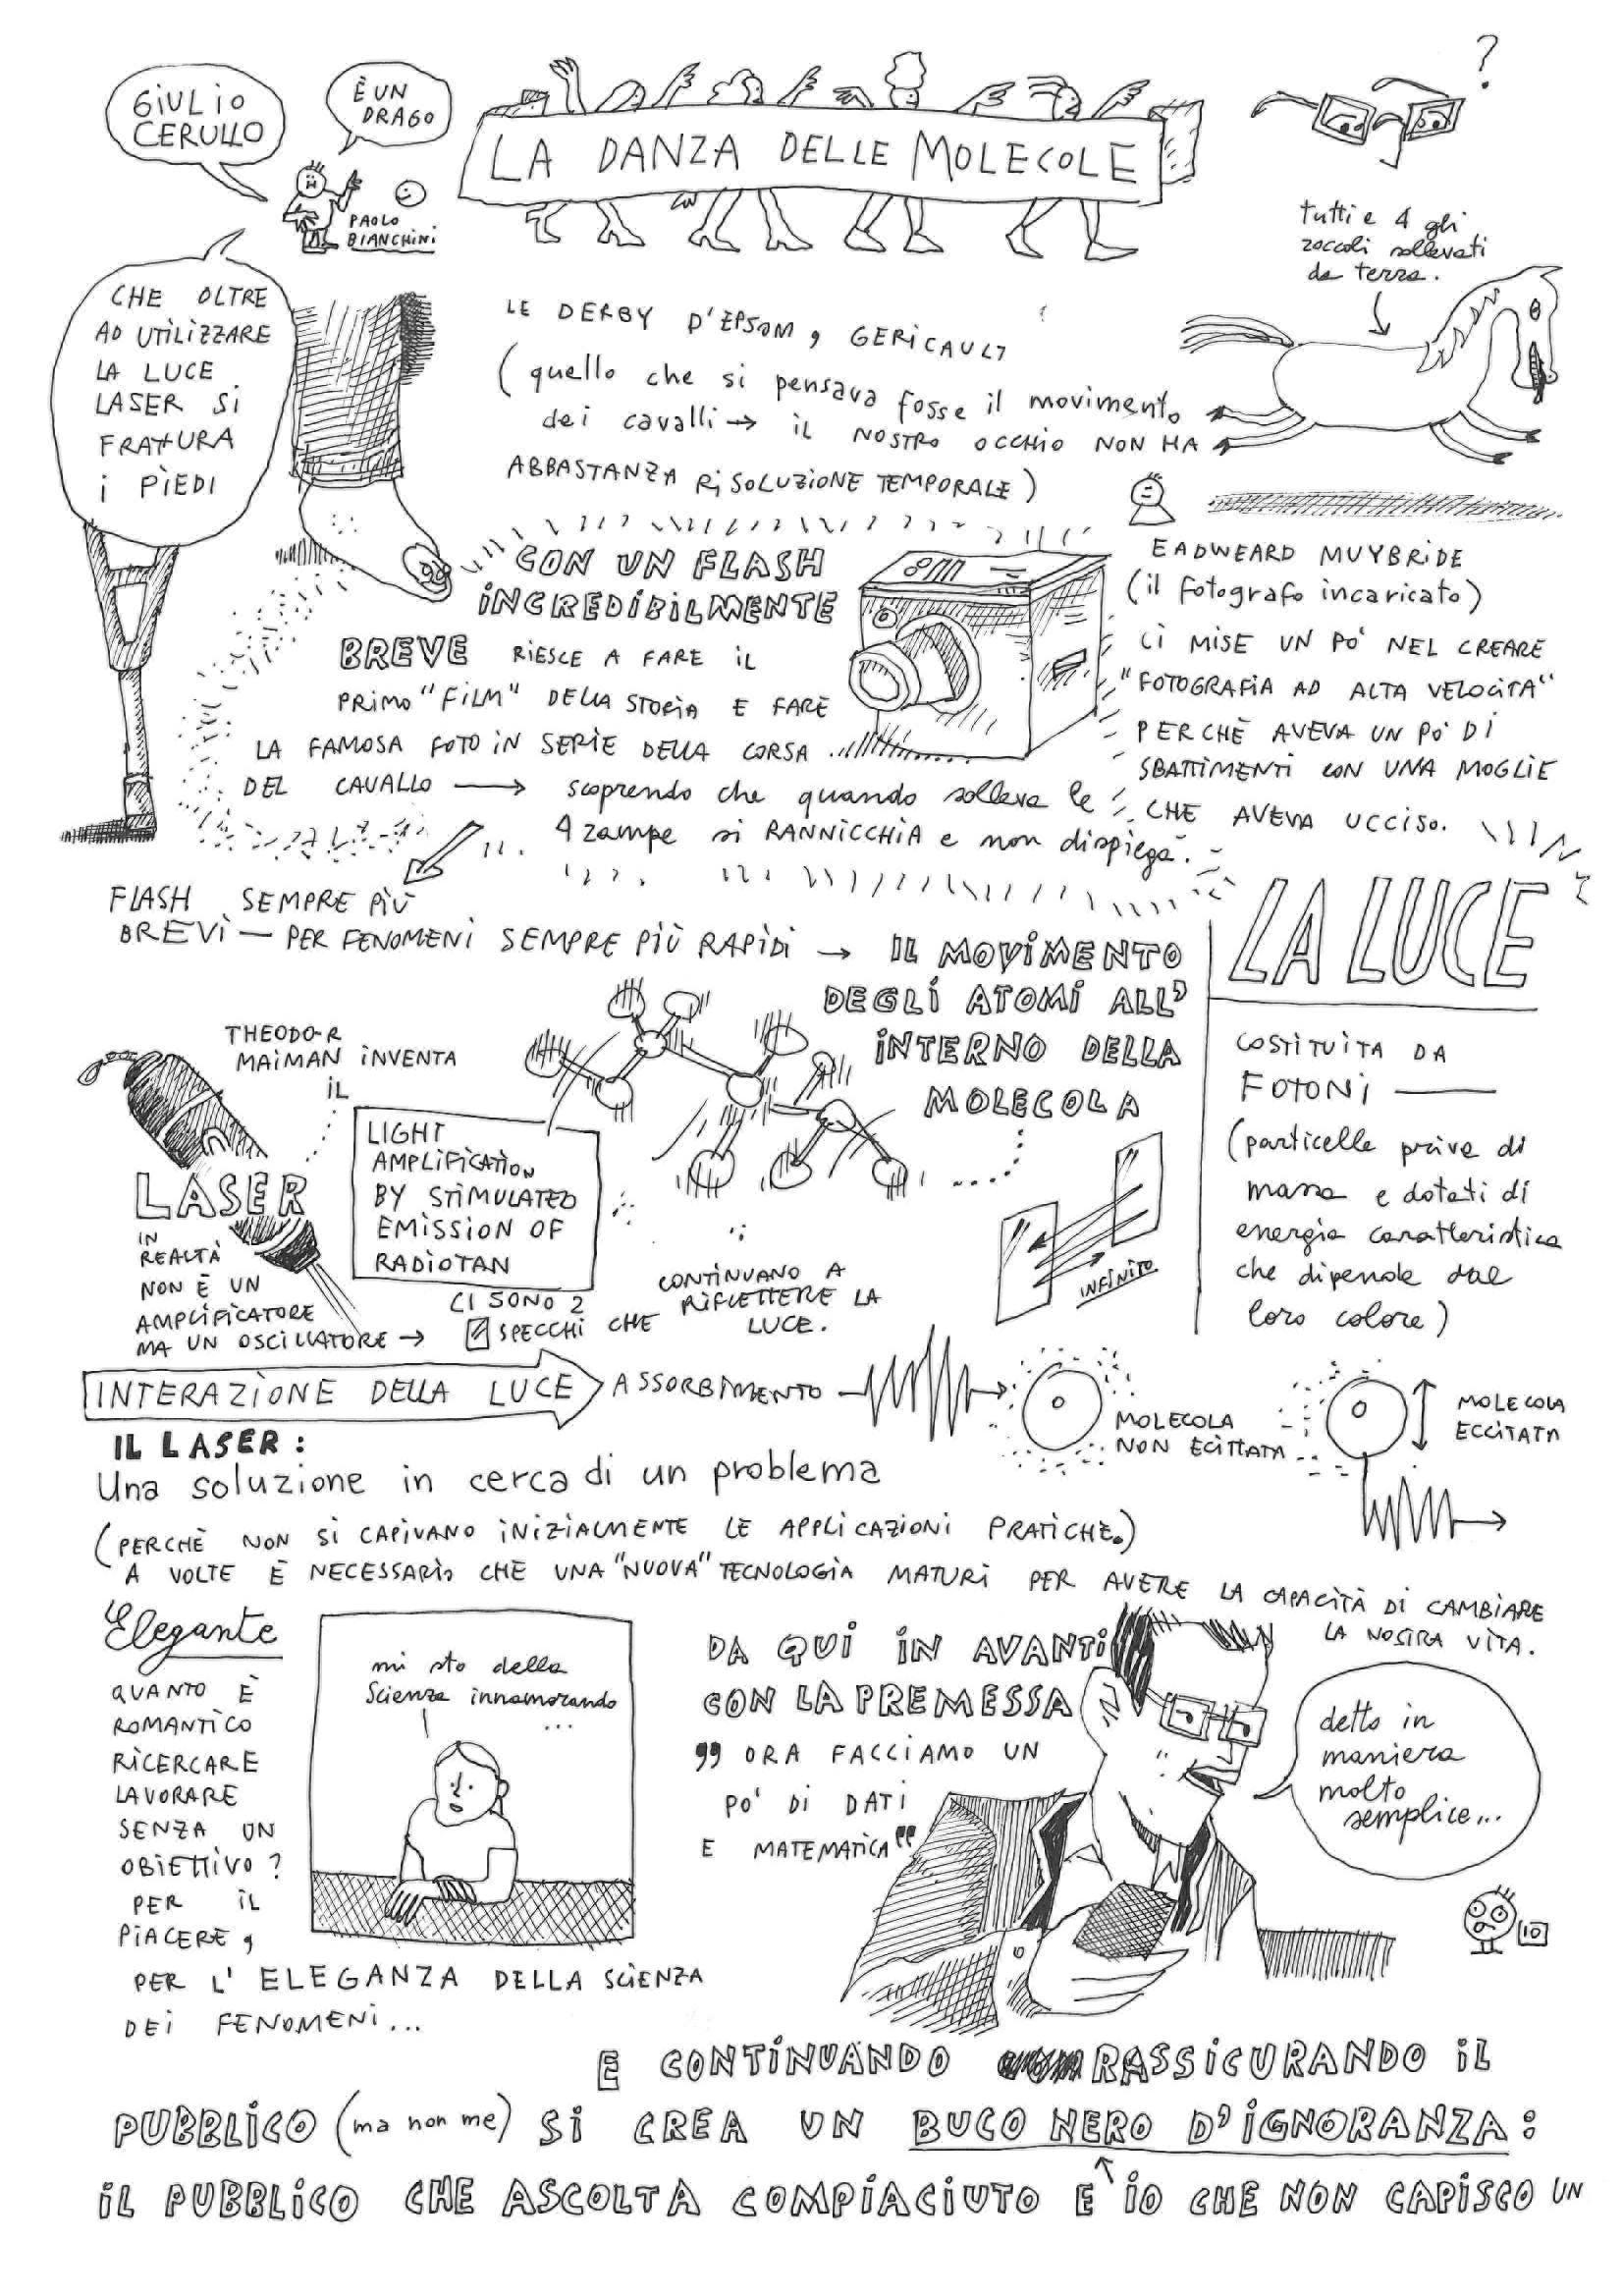 GIULIO
CERULLO
È UN
DRAGO
PAOLO
BIANCHINI
LA DANZA DELLE MOLECOLE
?
CHE OLTRE
AD UTILIZZARE
LA LUCE
LASER SI
FRATTURA
I PIEDI
LE DERBY D'EPSOM, GERICAULT
(quello che si pensava fosse il movimento
dei cavalli → IL NOSTRO OCCHIO NON HA
ABBASTANZA RISOLUZIONE TEMPORALE)
tutti e 4 gli
zoccoli sollevati
da terra.
CON UN FLASH
INCREDIBILMENTE
BREVE RIESCE A FARE IL
PRIMO "FILM" DELLA STORIA E FARE
LA FAMOSA FOTO IN SERIE DELLA CORSA
DEL CAVALLO → scoprendo che quando solleva le
4 zampe si RANNICCHIA e non dispiega.
EADWEARD MUYBRIDE
(il fotografo incaricato)
CI MISE UN PO' NEL CREARE
"FOTOGRAFIA AD ALTA VELOCITA"
PERCHÈ AVEVA UN PO' DI
SBATTIMENTI CON UNA MOGLIE
CHE AVEVA UCCISO.
FLASH SEMPRE PIÙ
BREVI — PER FENOMENI SEMPRE PIÙ RAPIDI → IL MOVIMENTO
DEGLI ATOMI ALL'
INTERNO DELLA
MOLECOLA
LA LUCE
COSTITUITA DA
FOTONI —
(particelle prive di
massa e dotati di
energia caratteristica
che dipende dal
loro colore)
THEODOR
MAIMAN INVENTA
IL
LASER
LIGHT
AMPLIFICATION
BY STIMULATED
EMISSION OF
RADIOTAN
IN
REALTÀ
NON È UN
AMPLIFICATORE
MA UN OSCILLATORE →
CI SONO 2
SPECCHI CHE
CONTINUANO A
RIFLETTERE LA
LUCE.
INFINITO
INTERAZIONE DELLA LUCE
ASSORBIMENTO
MOLECOLA
NON ECITTATA
MOLECOLA
ECCITATA
IL LASER:
Una soluzione in cerca di un problema
(PERCHÈ NON SI CAPIVANO INIZIALMENTE LE APPLICAZIONI PRATICHE.)
A VOLTE È NECESSARIO CHE UNA "NUOVA" TECNOLOGIA MATURI PER AVERE LA CAPACITÀ DI CAMBIARE
LA NOSTRA VITA.
Elegante
QUANTO È
ROMANTICO
RICERCARE
LAVORARE
SENZA UN
OBIETTIVO?
PER IL
PIACERE,
PER L'ELEGANZA DELLA SCIENZA
DEI FENOMENI...
mi sto della
Scienza innamorando
...
DA QUI IN AVANTI
CON LA PREMESSA
"ORA FACCIAMO UN
PO' DI DATI
E MATEMATICA"
detto in
maniera
molto
semplice...
IO
E CONTINUANDO RASSICURANDO IL
PUBBLICO (ma non me) SI CREA UN BUCO NERO D'IGNORANZA:
IL PUBBLICO CHE ASCOLTA COMPIACIUTO E IO CHE NON CAPISCO UN